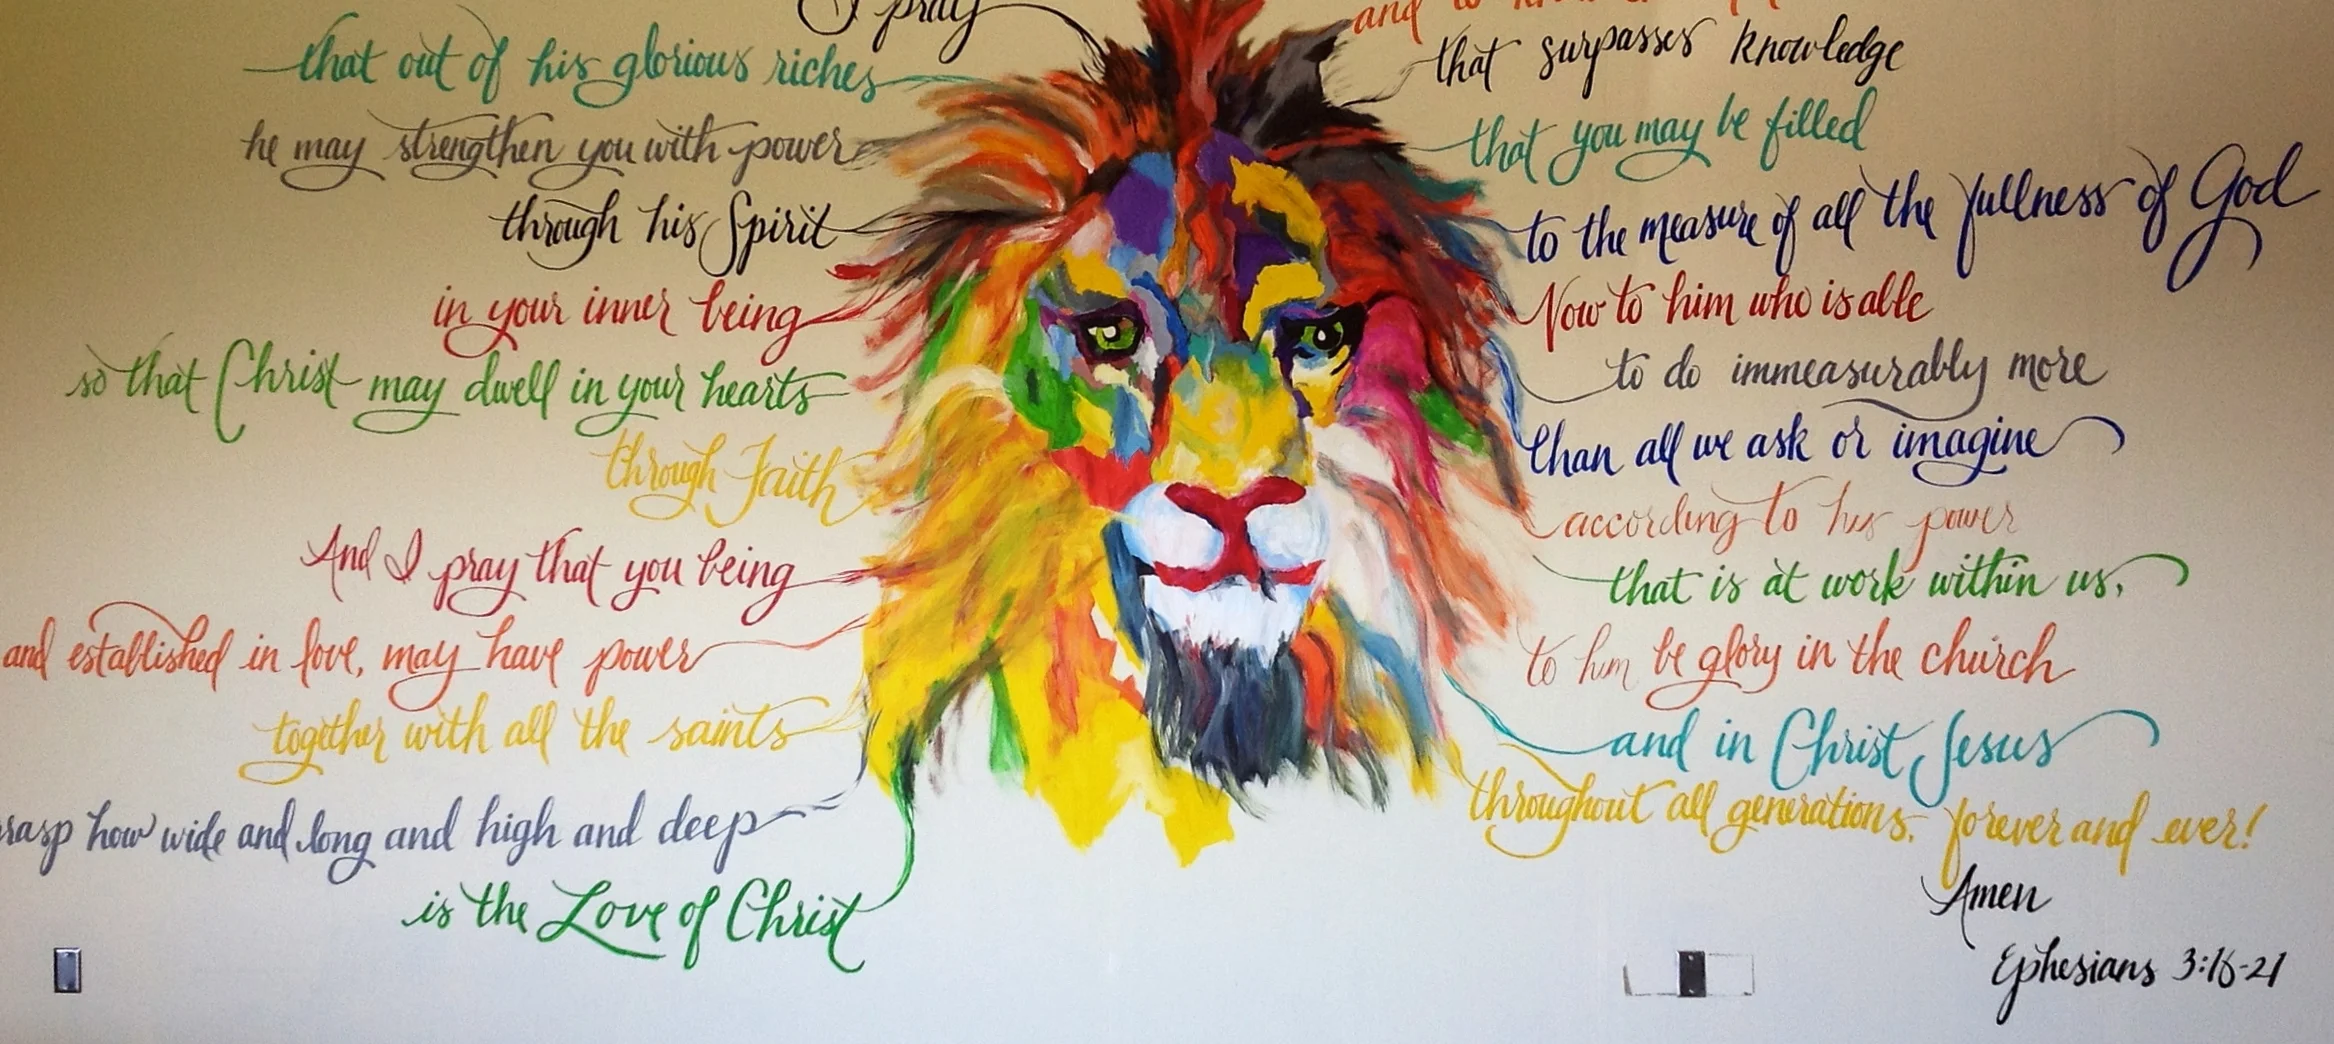 I pray
that out of his glorious riches
he may strengthen you with power
through his Spirit
in your inner being
so that Christ may dwell in your hearts
through Faith
And I pray that you being
and established in love, may have power
together with all the saints
how wide and long and high and deep
is the Love of Christ
and to
that surpasses knowledge
that you may be filled
to the measure of all the fullness of God
Now to him who is able
to do immeasurably more
than all we ask or imagine
according to his power
that is at work within us,
to him be glory in the church
and in Christ Jesus
throughout all generations, forever and ever!
Amen
Ephesians 3:16-21